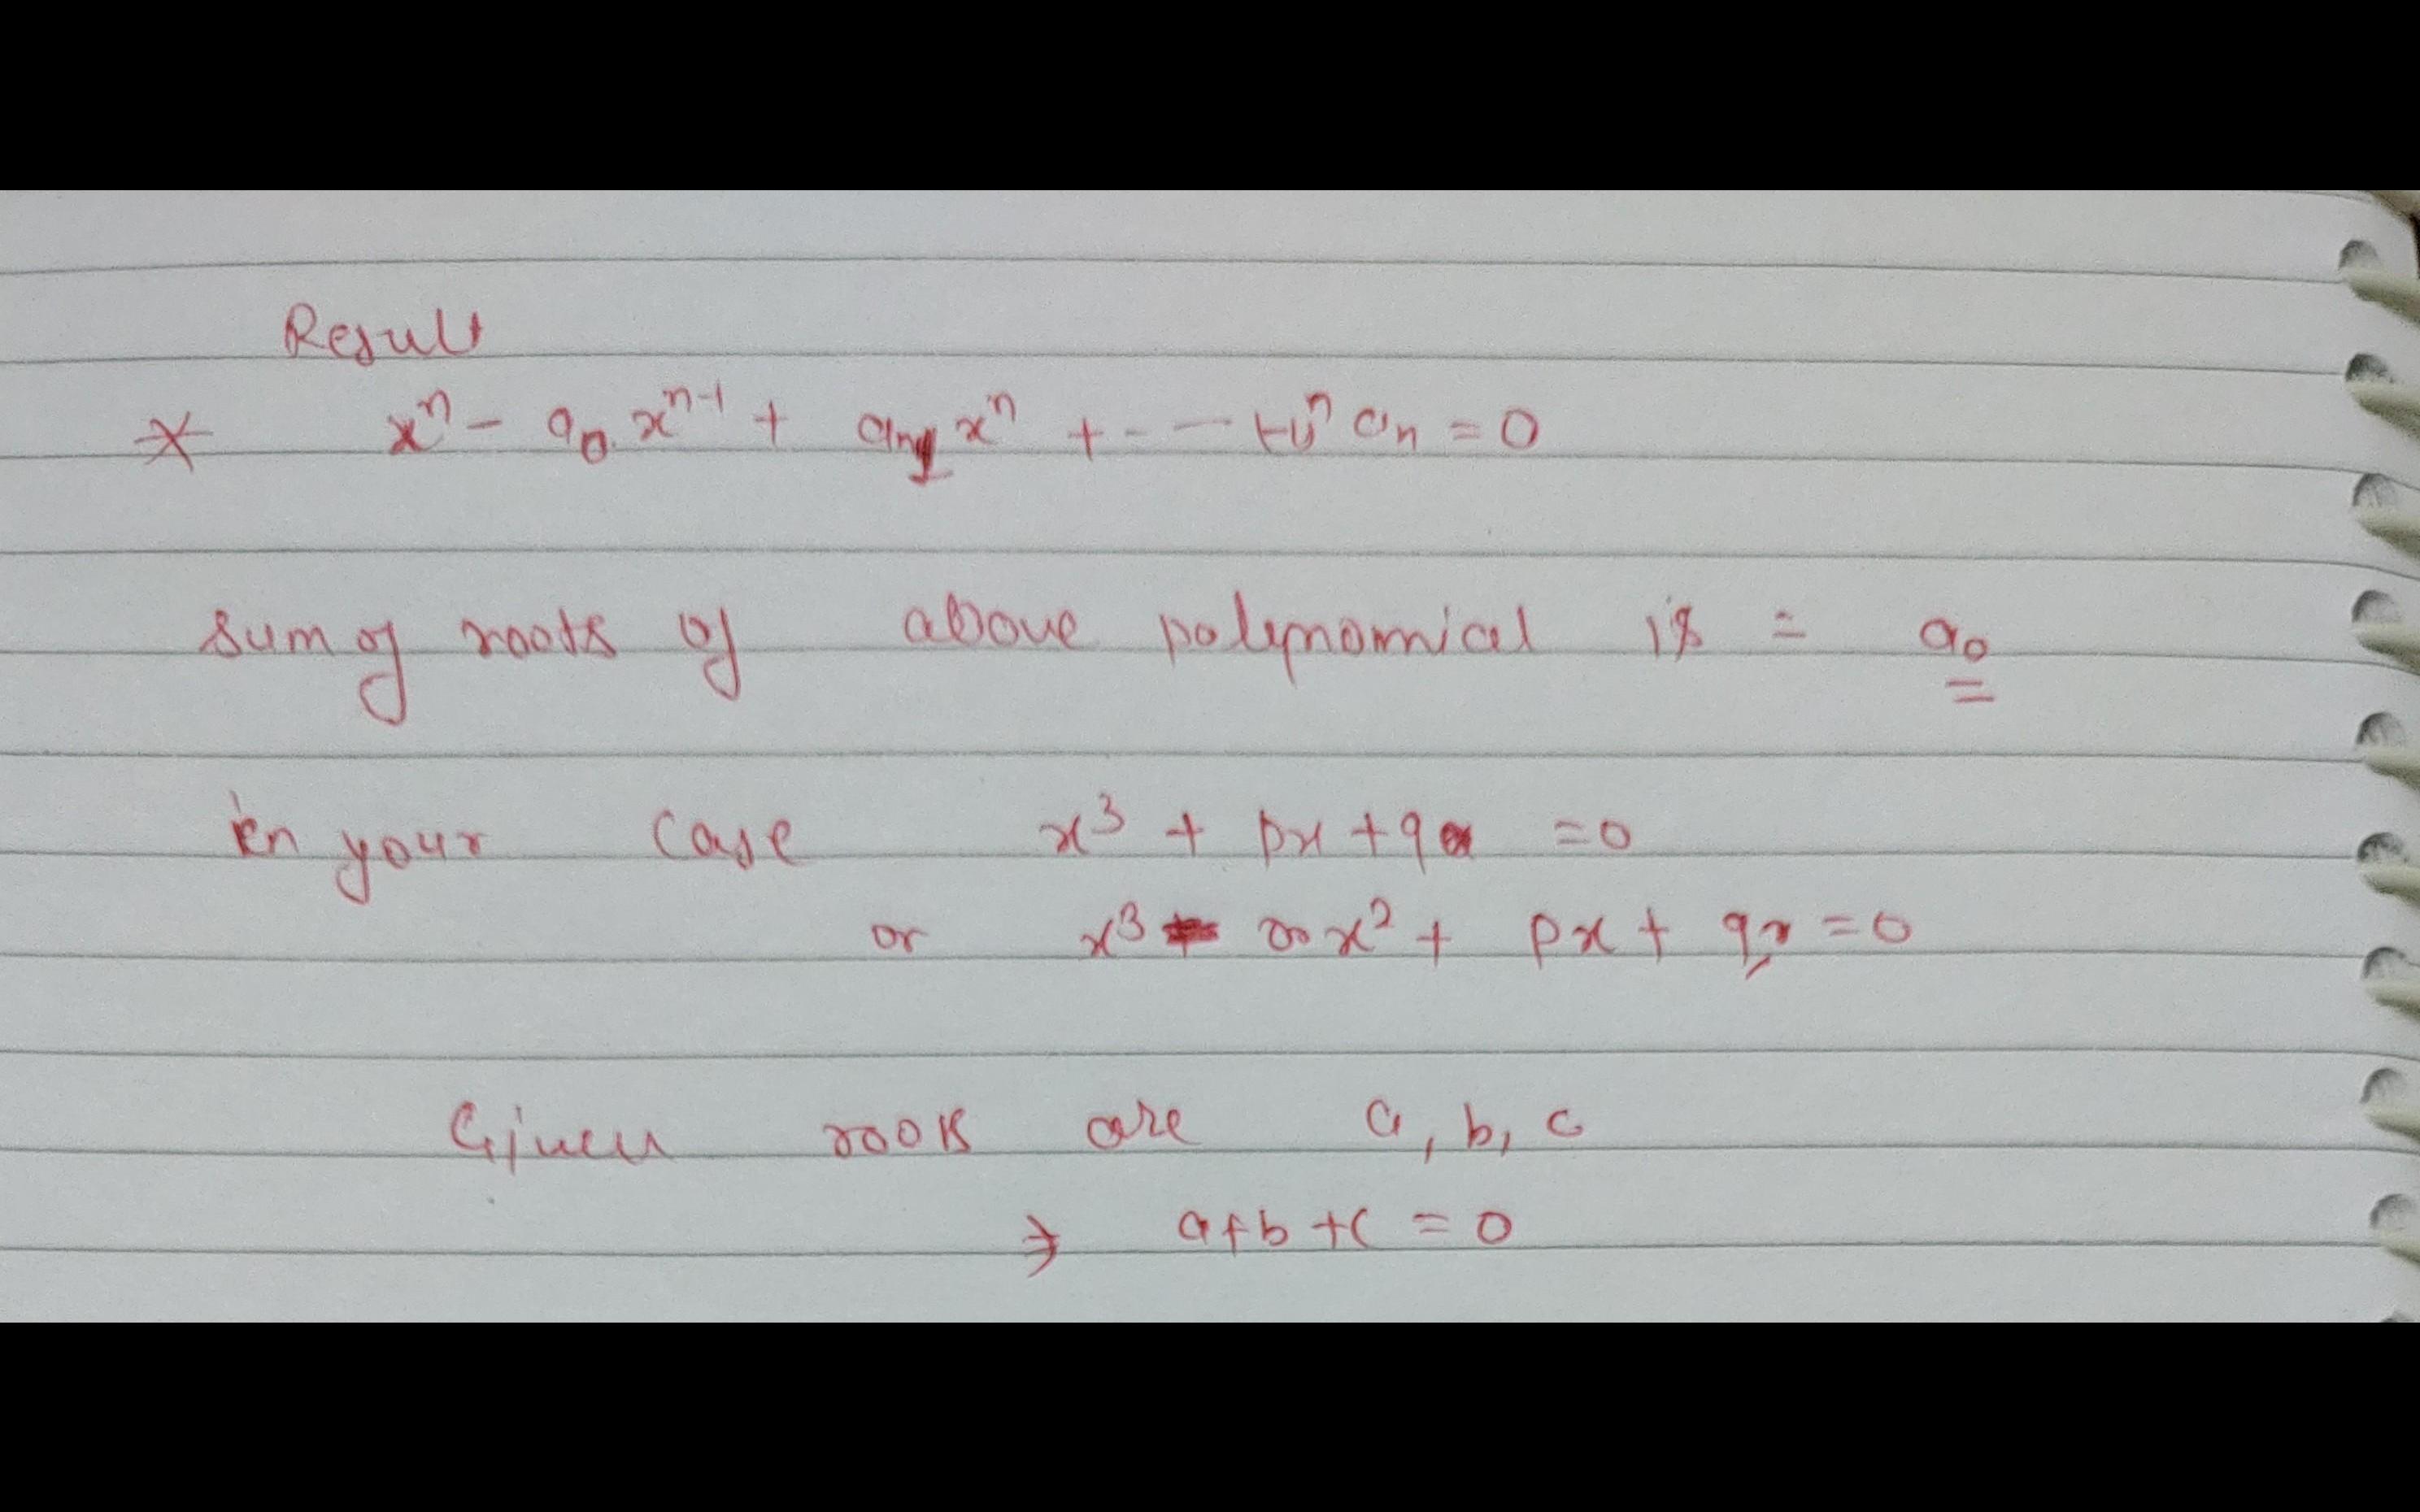 Result
* xⁿ - a₀ xⁿ⁻¹ + xⁿ + - - (-1)ⁿ aₙ = 0
sum of roots of above polynomical is = a₀
in your case x³ + px + q = 0
or x³ - 0x² + px + q = 0
Given roots are a, b, c
⇒ a+b+c = 0